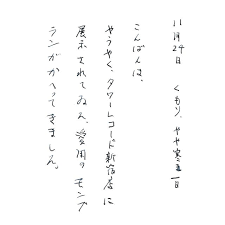 11月24日　くもり、やや寒い一日
こんばんは。
やうやく、タワーレコード新宿店に
展示されてゐた、愛用のモンブ
ランがかへってきました。